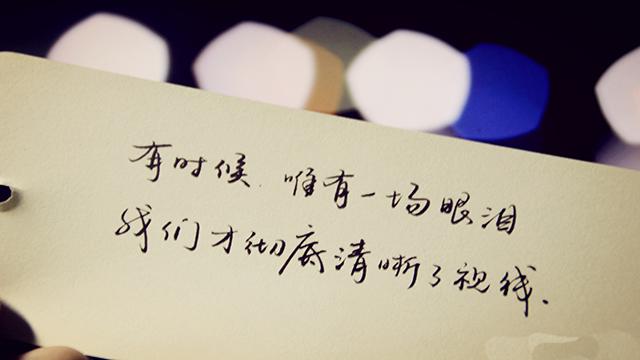 有时候.唯有一场眼泪
我们才彻底清晰了视线.